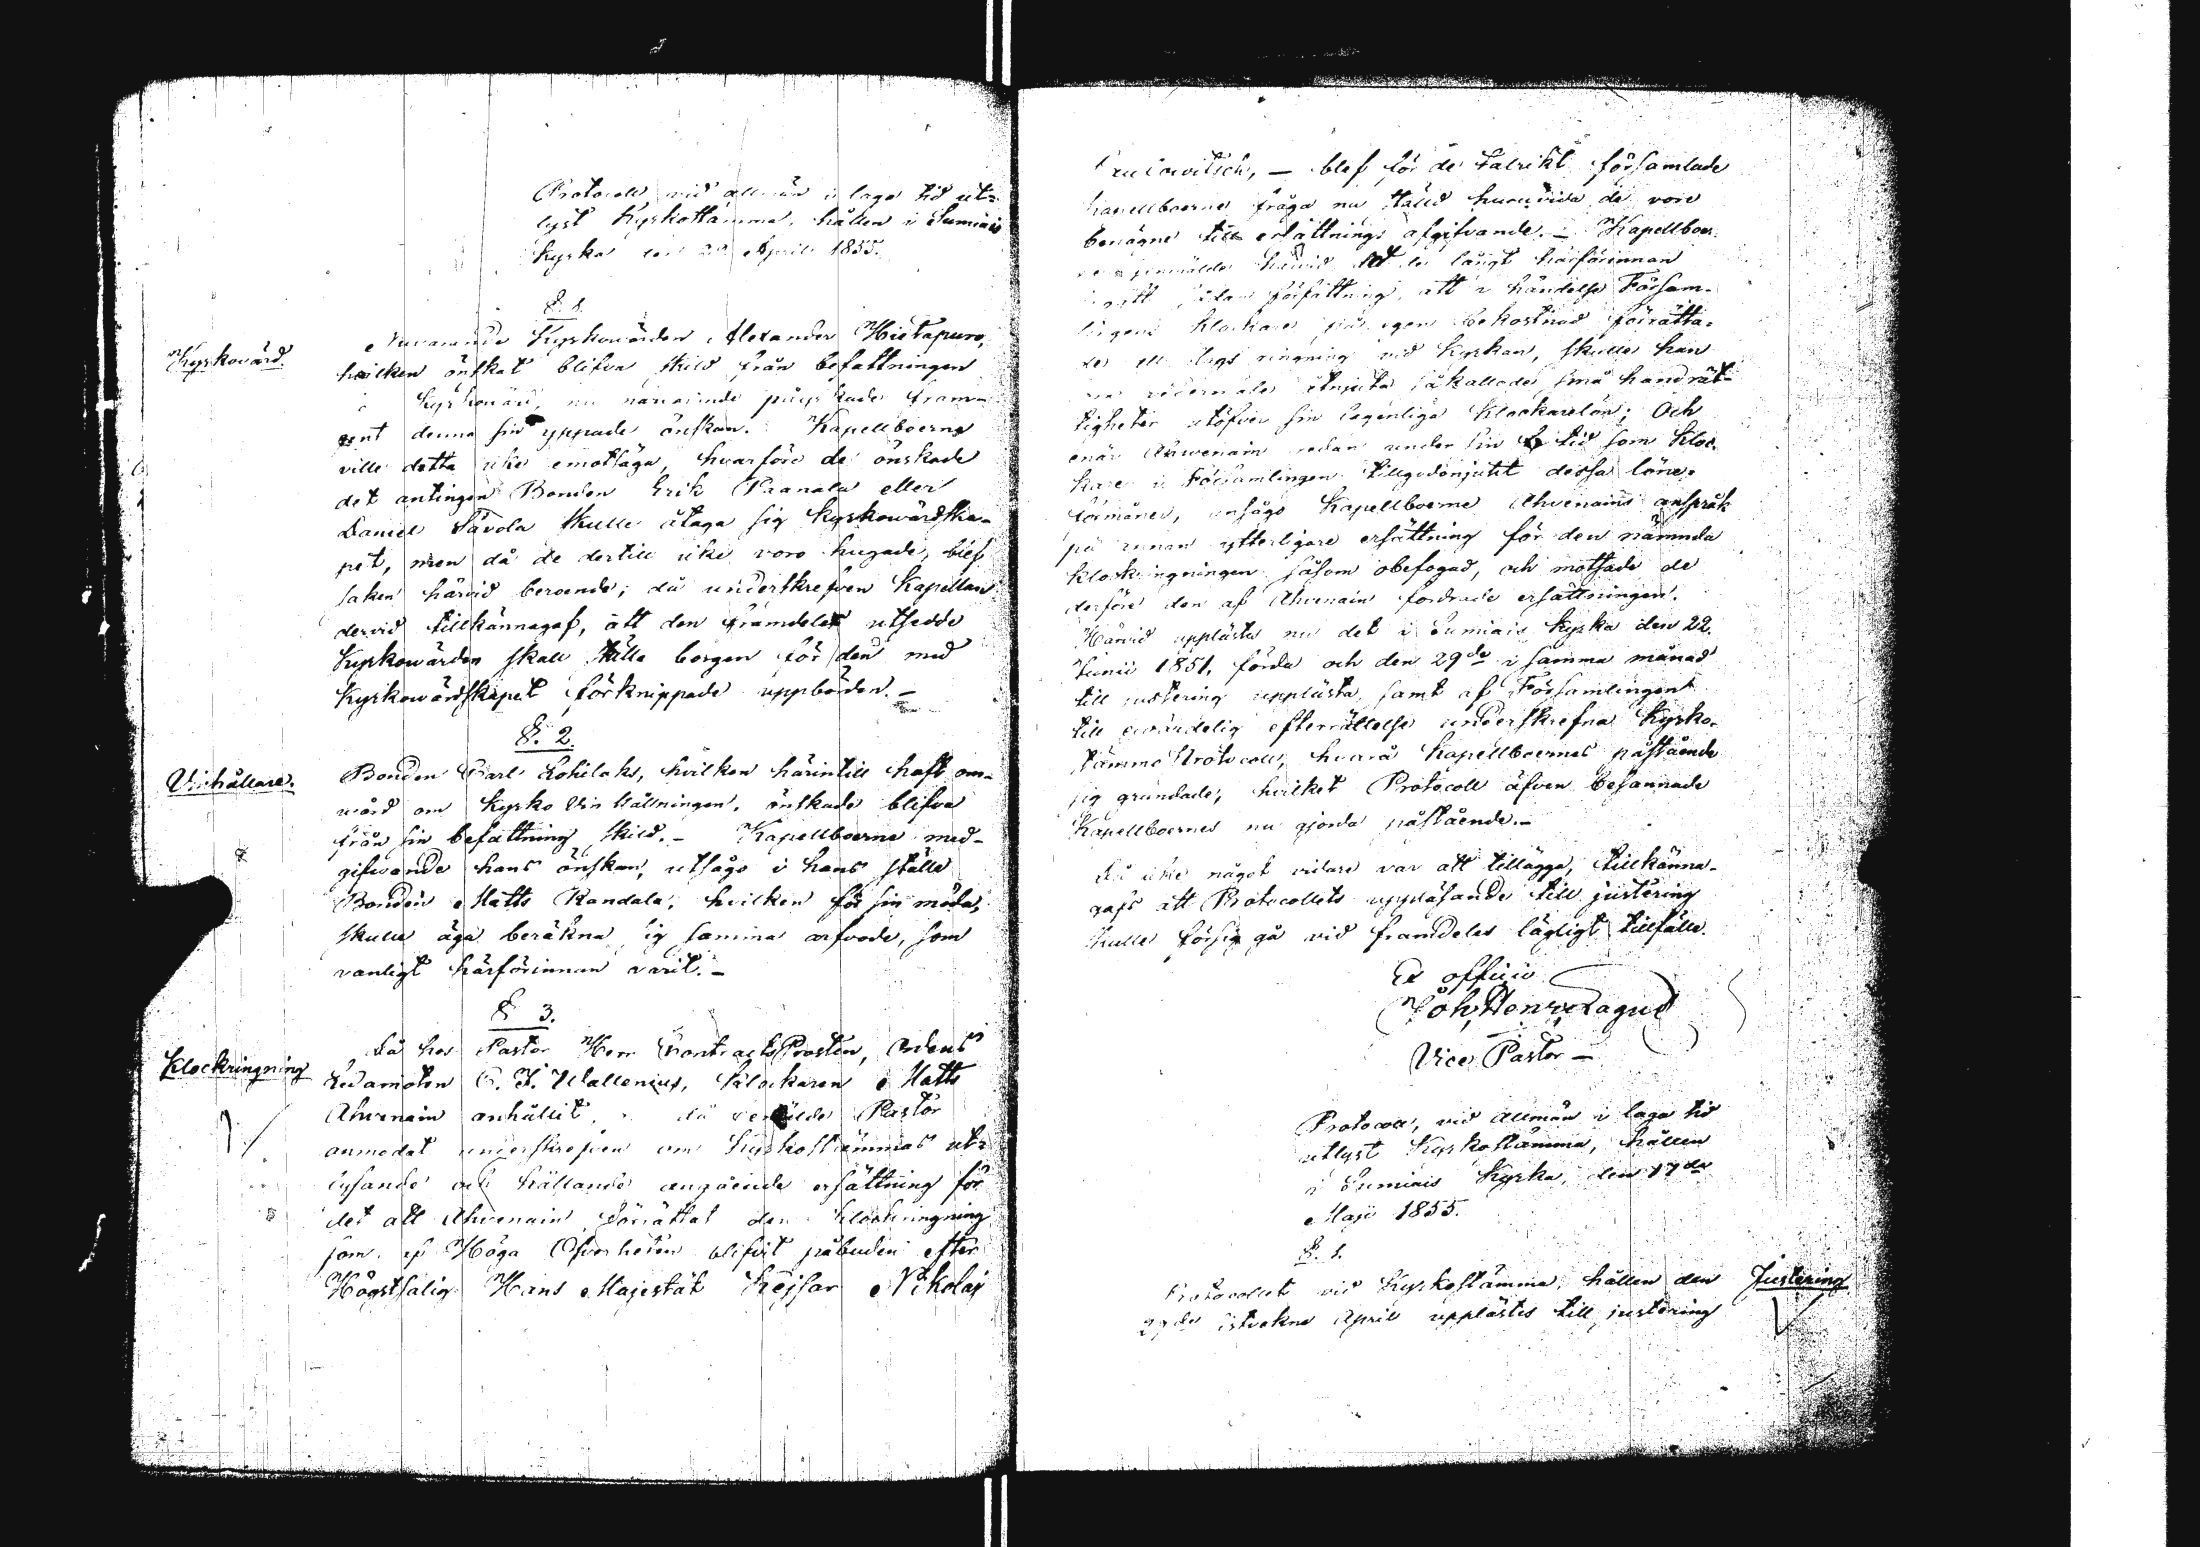 Protocoll vid allmän i laga tid ut-
lyst Kyrkostämma, hållen i Sumiais
Kyrka den 29 April 1855.
§. 1.
Kyrkovärd.
Nuvarande Kyrkowärden Alexander Hietapuro,
hvilken önskat blifva skild från befattningen
Kyrkovärd, nu närvarande påyrkade
denna sin yppade önskan. Kapellboerne
ville detta icke emottaga, hvarföre de önskade
det antingen Bonden Erik Paanala eller
Daniel Tavola skulle åtaga sig Kyrkowärdska-
pet, men då de dertill icke voro hugade, blef
saken härvid beroende; då underskrefven Kapellan
dervid tillkännagaf, att den framdeles utsedde
Kyrkowärden skall ställa borgen för den med
Kyrkowärdskapet förknippade uppbörden. –
§. 2.
Vinhållare.
Bonden Carl Lohilaks, hvilken härintill haft om-
vård om Kyrko Vin hållningen, önskade blifva
från sin befattning skild. – Kapellboerne med-
gifwande hans önskan, utsågo i hans ställe
Bonden Matts Randala, hvilken för sin möda,
skulle äga beräkna sig samma arfvode, som
vanligt härförinnan varit. –
§ 3.
Klockringning
Då hos Pastor Herr ContractsProsten, Ordens
Ledamoten C. J. Wallenius, Klockaren Matts
Ahvenain anhållit, då Pastor
anmodat underskrefven om Kyrkostämmas ut-
lysande och hållande angående ersättning för
det att Ahvenain förrättat den klockringning
som af Höga Öfverheten blifvit påbuden efter
Högstsalig Hans Majestät Kejsar Nikolaj
Paulowitsch, – blef för de talrikt församlade
kapellboerne fråga nu ställd huruvida de vore
benägne till ersättnings afgifvande. – Kapellboer-
ne genmälde härvid att de långt härförinnan
författning, att i händelse Försam-
lingens Klockare på egen bekostnad förrätta-
de ringning vid Kyrkan, skulle han
åtnjuta såkallade små handrät-
tigheter utöfver sin egenliga Klockarelön; Och
enär Ahvenain redan under sin tid som Kloc-
kare i Församlingen tillgodonjutit dessa löne-
förmåner, ansågo Kapellboerne Ahvenains anspråk
på annan ytterligare ersättning för den nämnda
klockringningen såsom obefogad, och motsade de
derföre den af Ahvenain fordrade ersättningen.
Härvid upplästes nu det i Sumiais Kyrka den 22.
Junii 1851, förda och den 29de i samma månad
till justering upplästa samt af Församlingen
till ovärdelig efterrättelse underskrefna Kyrko-
stämmo Protocoll, hvarå Kapellboernes påstående
sig grundade; hvilket Protocoll äfven besannade
Kapellboernes nu gjorda påstående. –
Då icke något vidare var att tillägga, tillkänna-
gafs att Protocollets uppläsande till justering
skulle försiggå vid framdeles lägligt tillfälle.
Ex officio
Joh. Henr.
Vice Pastor –
Protocoll, vid allmän i laga tid
utlyst Kyrkostämma, hållen
i Sumiais Kyrka, den 17de
Maji 1855.
§. 1.
Justering
Protocollet vid Kyrkostämma, hållen den
29de sistvekne April upplästes till justering